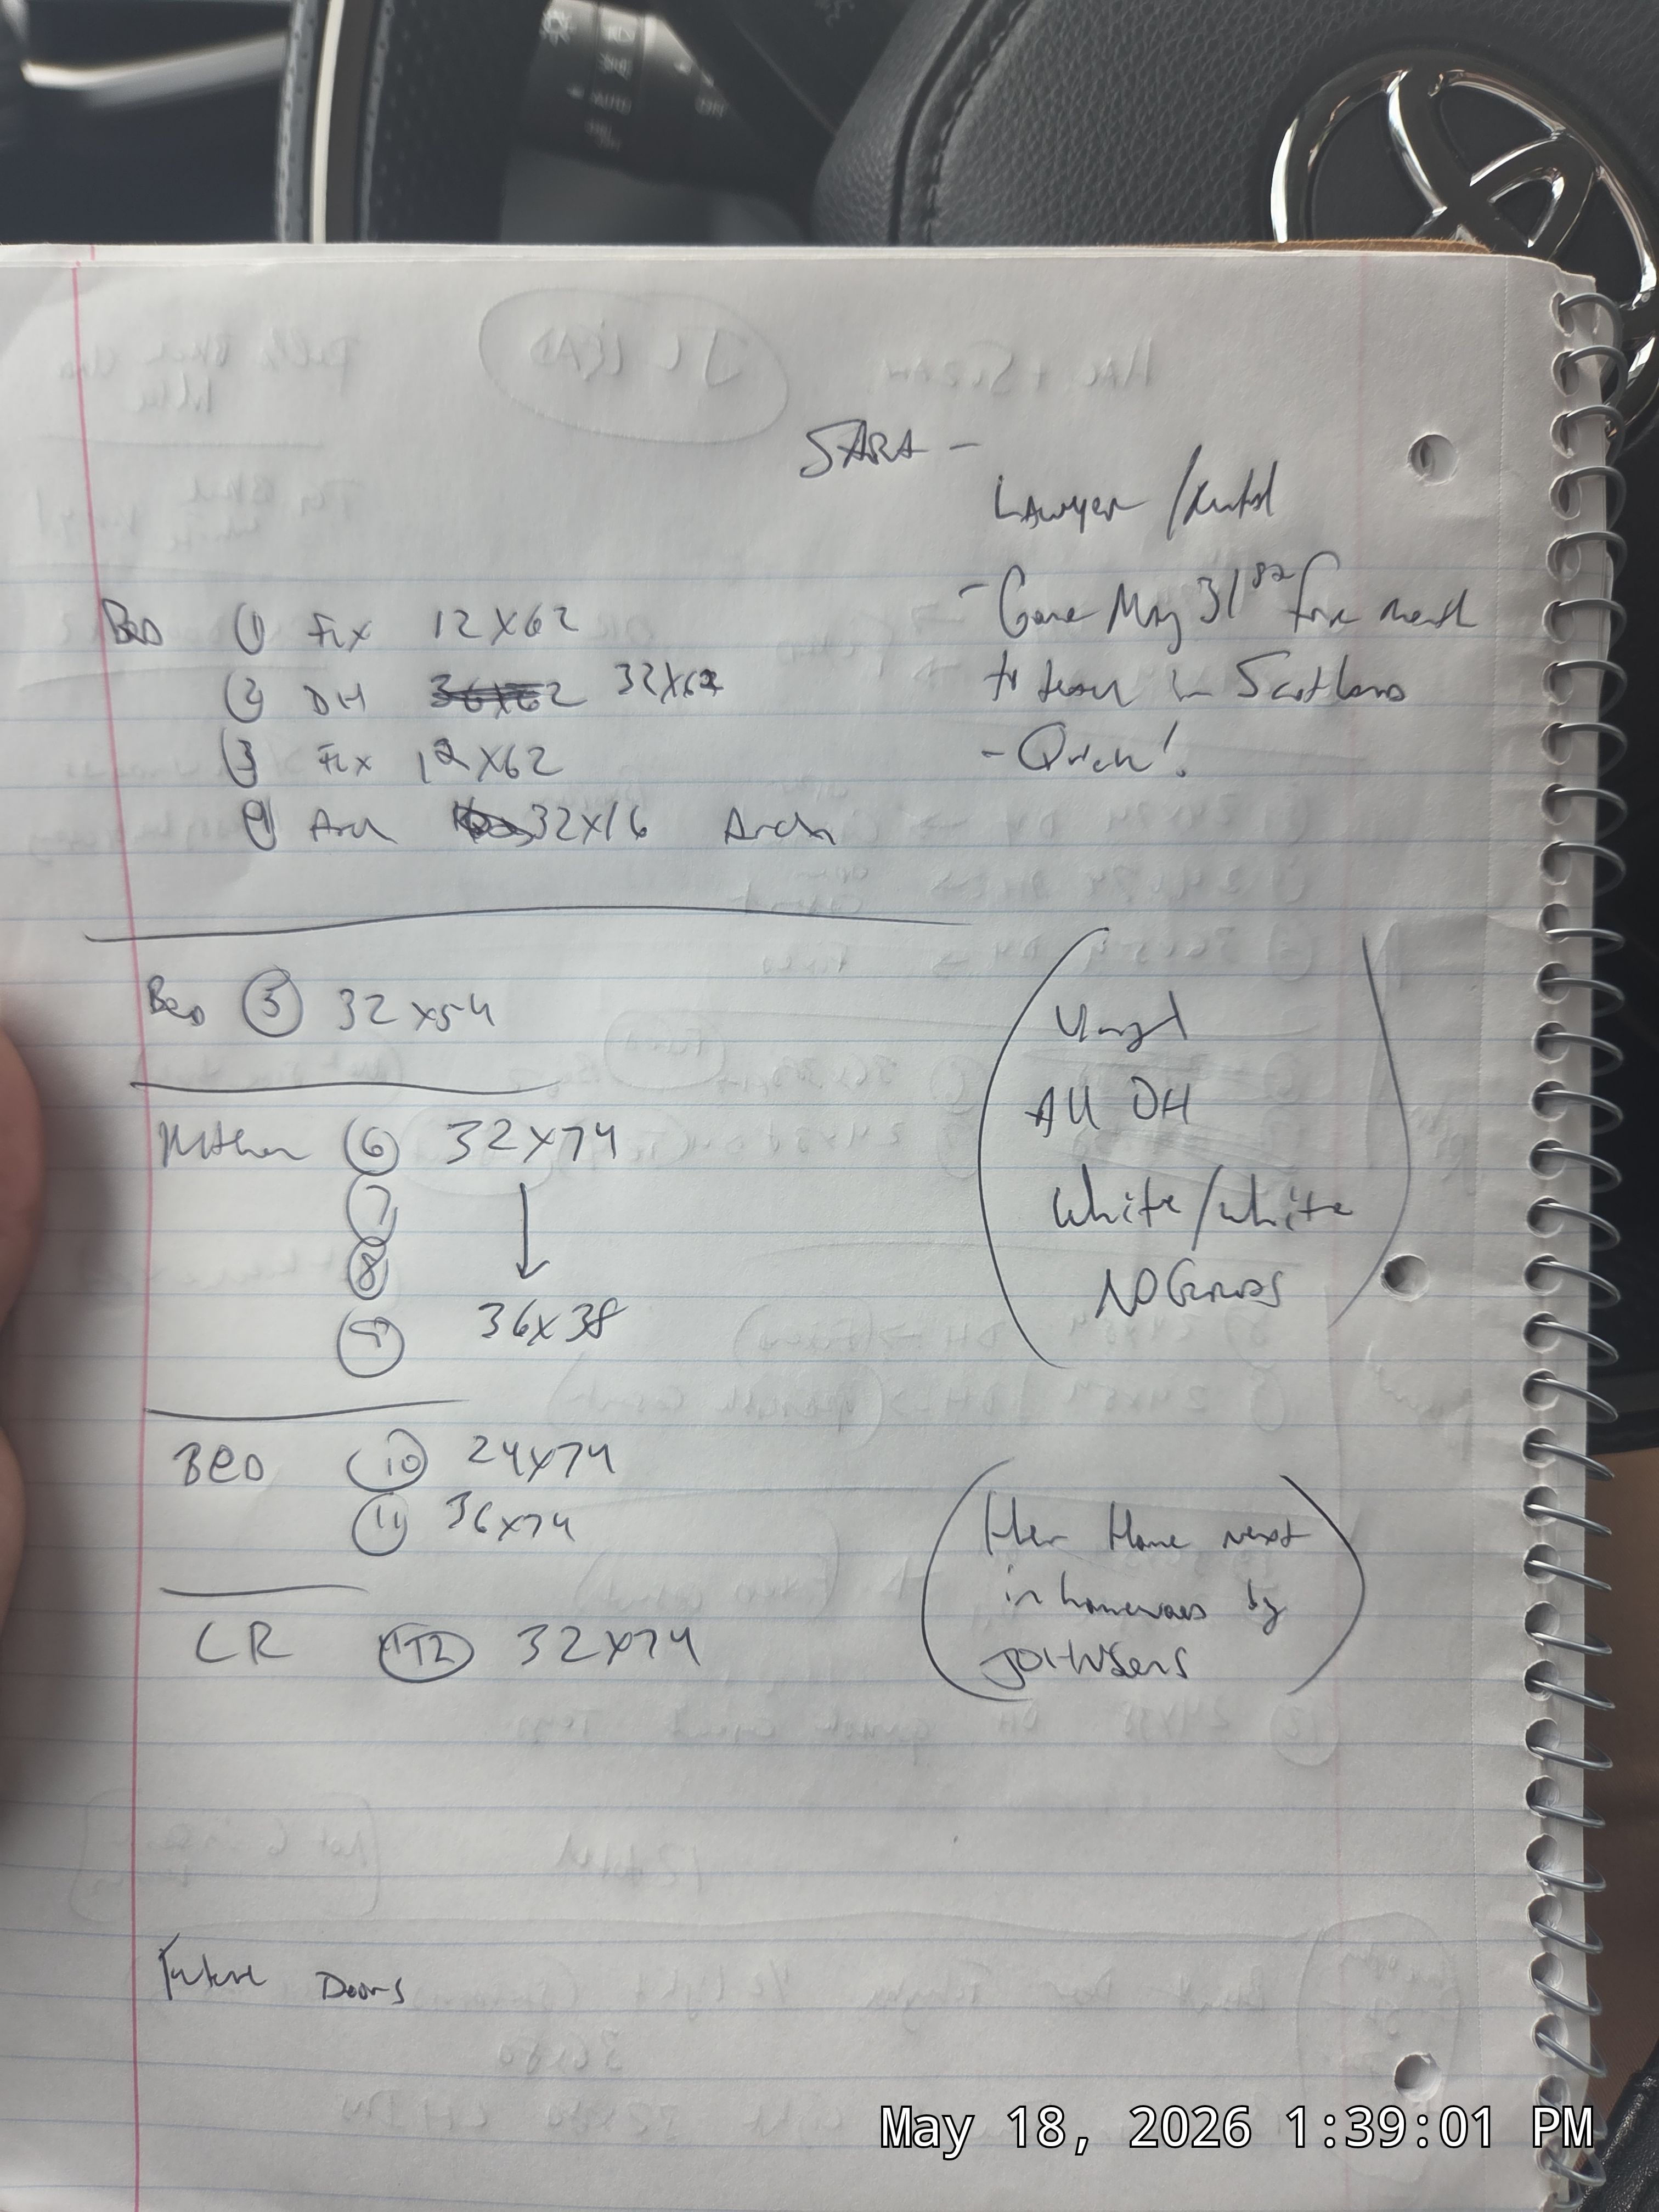 SARA -
Lawyer / Rental
- Gone May 31st for month
to teach in Scotland
- Quick!
Bed ① Fix 12x62
② DH 36x62 32x62
③ Fix 12x62
④ Arch 32x16 Arch
Bed ⑤ 32x54
Kitchen ⑥ 32x74
⑦ ↓
⑧
⑨ 36x38
Vinyl
All DH
White/white
NO Grids
BED ⑩ 24x74
⑪ 36x74
LR 12 32x74
Her Home next
in homewood by
Future Doors
AUTO
OFF
May 18, 2026 1:39:01 PM